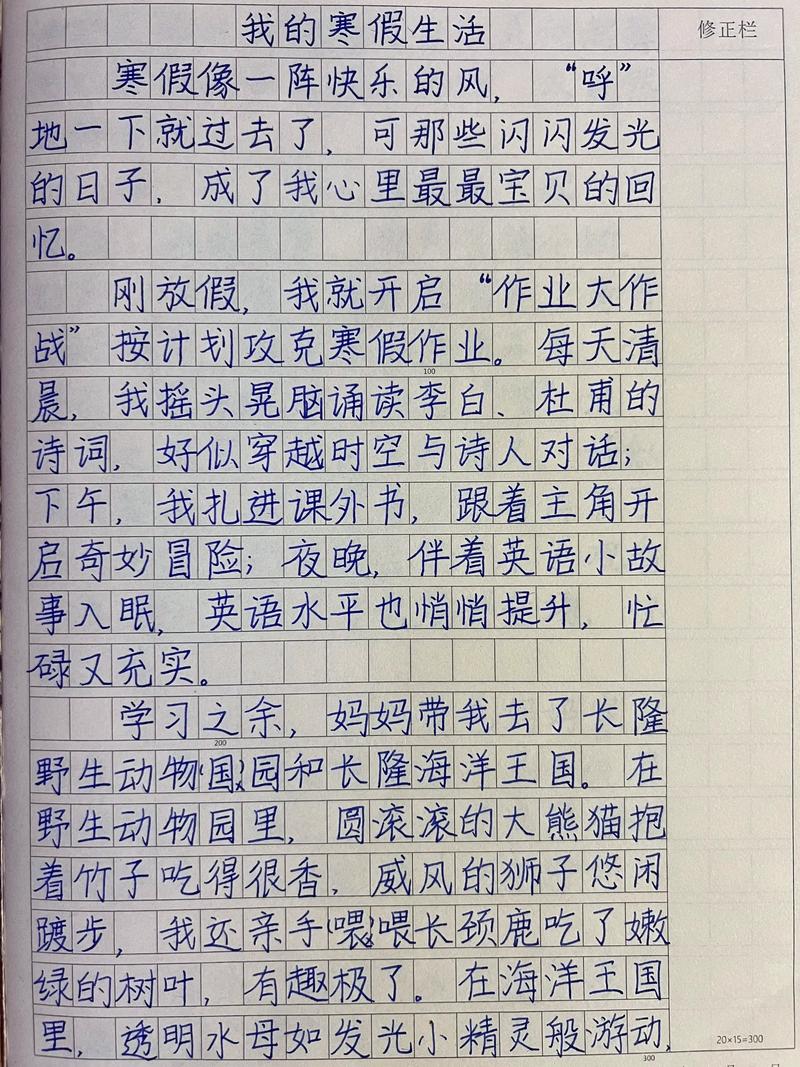 我的寒假生活
修正栏
寒假像一阵快乐的风，“呼”
地一下就过去了，可那些闪闪发光
的日子，成了我心里最最宝贝的回
忆。
刚放假，我就开启“作业大作
战”按计划攻克寒假作业。每天清
100
晨，我摇头晃脑诵读李白、杜甫的
诗词，好似穿越时空与诗人对话；
下午，我扎进课外书，跟着主角开
启奇妙冒险；夜晚，伴着英语小故
事入眠，英语水平也悄悄提升，忙
碌又充实。
学习之余，妈妈带我去了长隆
200
野生动物(国)园和长隆海洋王国。在
野生动物园里，圆滚滚的大熊猫抱
着竹子吃得很香，威风的狮子悠闲
踱步，我还亲手(喂)喂长颈鹿吃了嫩
绿的树叶，有趣极了。在海洋王国
里，透明水母如发光小精灵般游动，
20×15=300
300